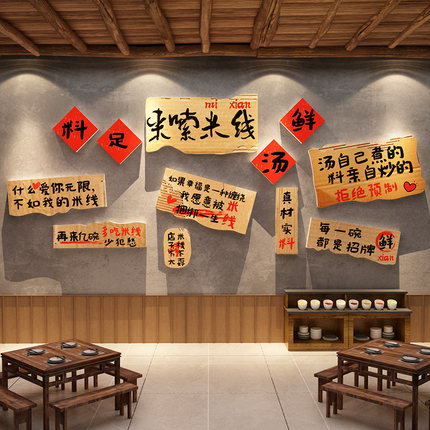 mi xian
来嗦米线
料足
汤鲜
汤自己煮的
料亲自炒的
拒绝预制
什么爱你无限,
不如我的米线
如果幸福是一种缠绕
我愿意被米
真材实料
再来几碗 多吃米线
少犯愁
每一碗
都是招牌
鲜
xian